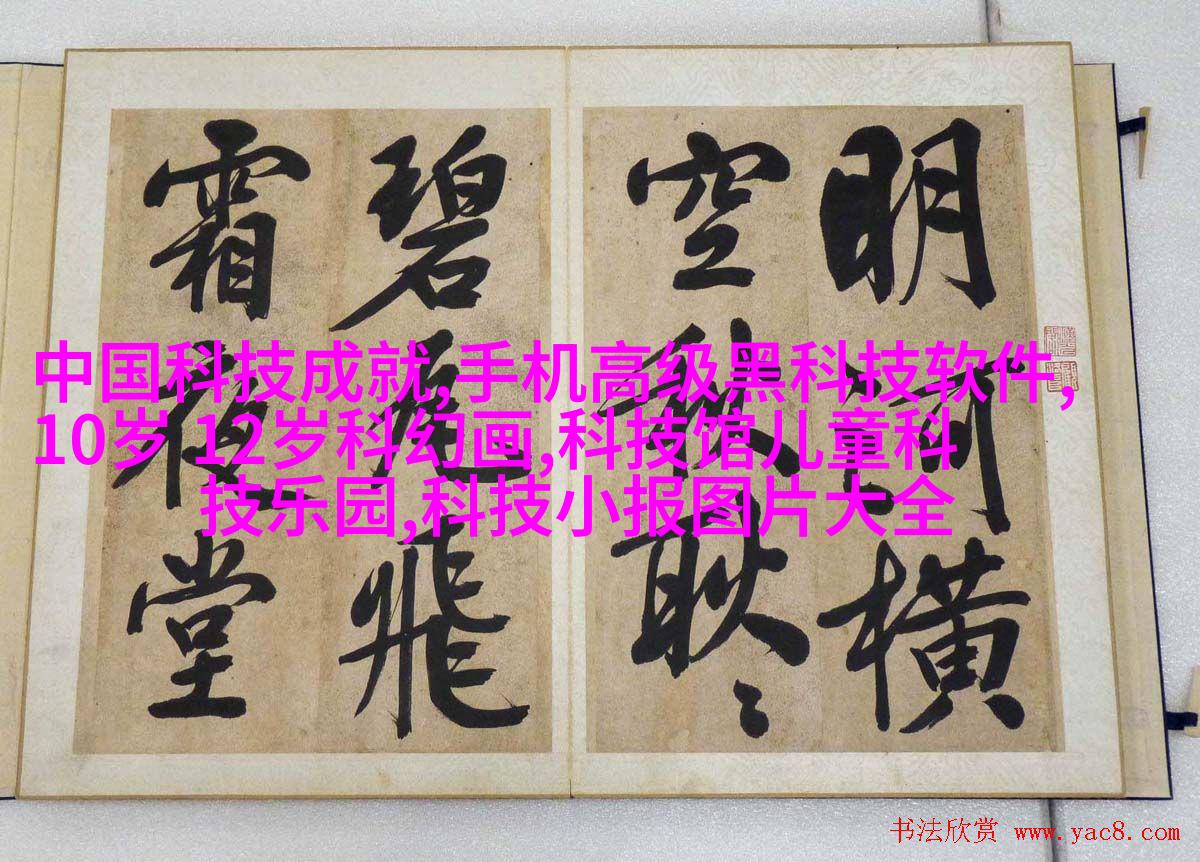 明河橫
空秋耿〻
碧瓦飛
霜夜堂
中国科技成就,手机高级黑科技软件,
10岁 12岁科幻画,科技馆儿童科
技乐园,科技小报图片大全
书法欣赏 www.yac8.com